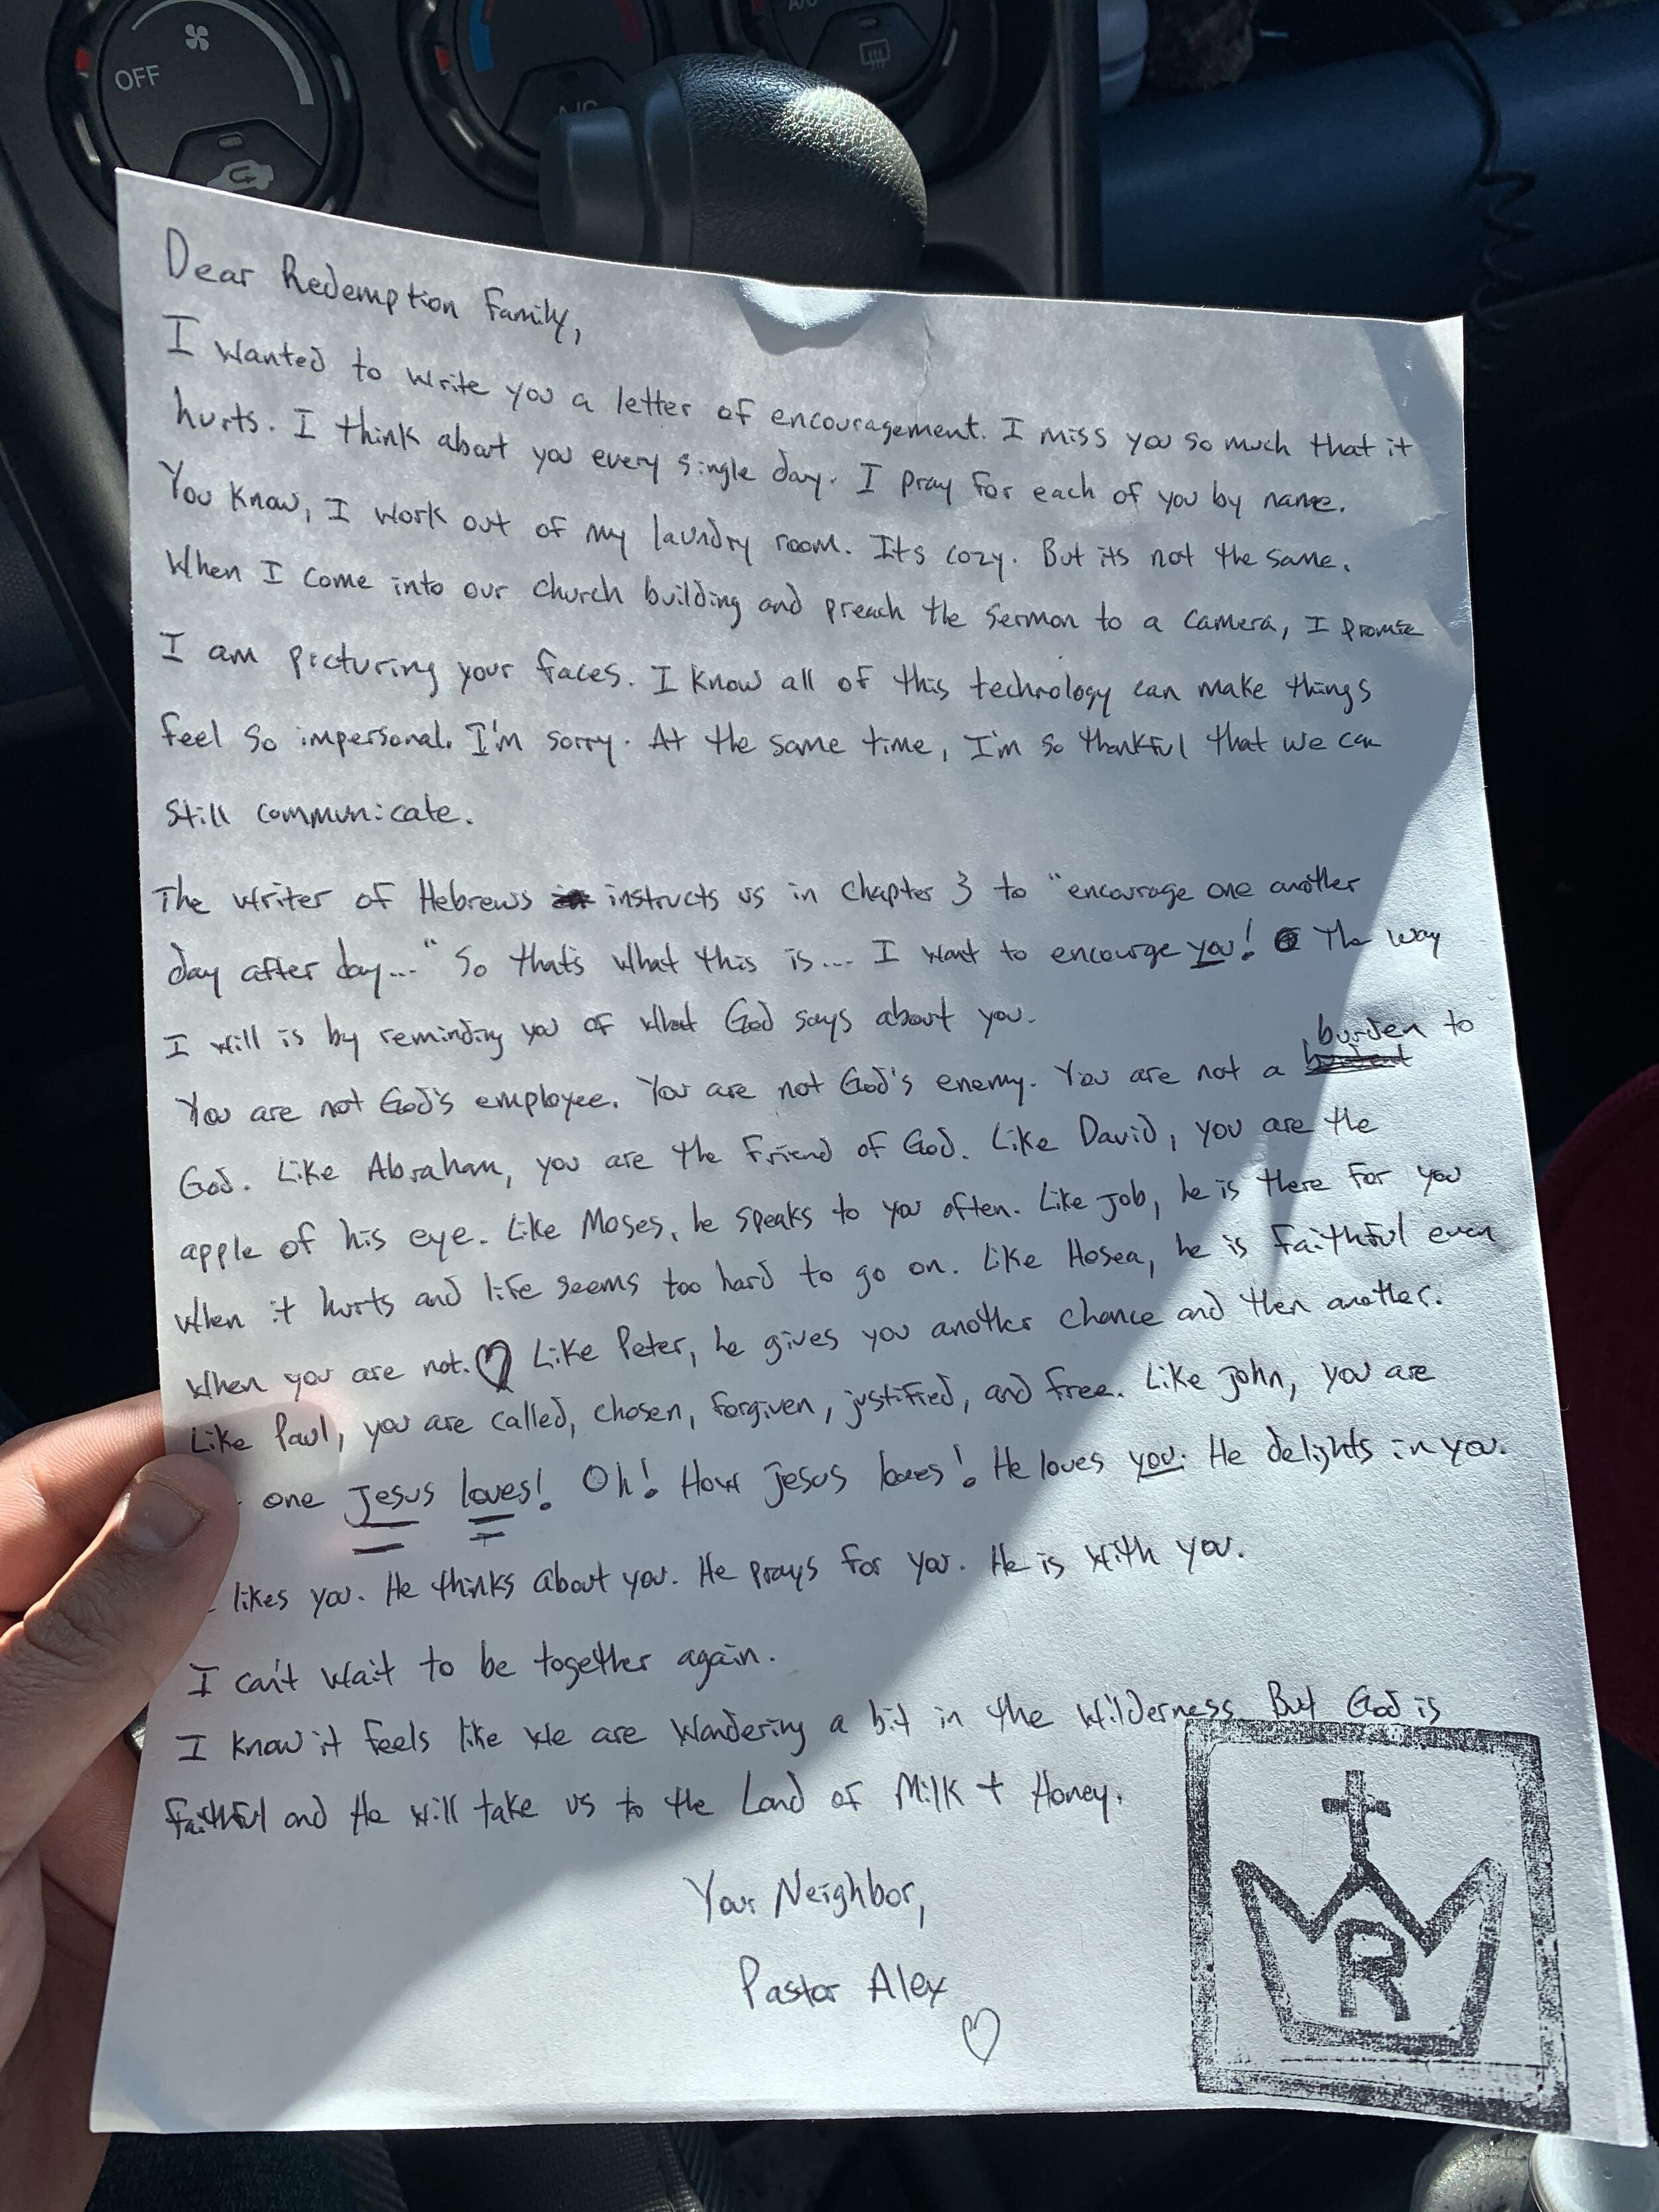 OFF
A/C
A/C
Dear Redemption Family,
I wanted to write you a letter of encouragement. I miss you so much that it
hurts. I think about you every single day. I pray for each of you by name.
You know, I work out of my laundry room. Its cozy. But its not the same.
When I come into our church building and preach the sermon to a camera, I promise
I am picturing your faces. I know all of this technology can make things
feel so impersonal. I'm sorry. At the same time, I'm so thankful that we can
still communicate.
The writer of Hebrews instructs us in Chapter 3 to "encourage one another
day after day..." So that's what this is... I want to encourge you! The way
I will is by reminding you of what God says about you.
You are not God's employee. You are not God's enemy. You are not a burden to
God. Like Abraham, you are the friend of God. Like David, you are the
apple of his eye. Like Moses, he speaks to you often. Like Job, he is there for you
when it hurts and life seems too hard to go on. Like Hosea, he is faithful even
when you are not. ♡ Like Peter, he gives you another chance and then another.
Like Paul, you are called, chosen, forgiven, justified, and free. Like John, you are
one Jesus loves! Oh! How Jesus loves! He loves you. He delights in you.
likes you. He thinks about you. He prays for you. He is with you.
I can't wait to be together again.
I know it feels like we are wandering a bit in the wilderness. But God is
faithful and He will take us to the Land of Milk + Honey.
Your Neighbor,
Pastor Alex
♡
R